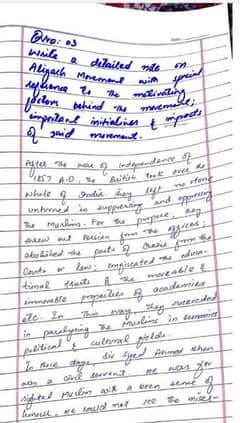 Q.no: 03
Write a detailed note on
Aligarh Movement with special
reference to the motivating
factors behind the movement;
important initialives & impacts
of said movement.
After the war of Independence of
1857 A.D, the British took over the
whole of India. They left no stone
unturned in suppressing and oppressing
the Muslims. For the purpose, they
threw out Persian from the offices;
abolished the posts of from the
Courts of law; confiscated the educa-
tional trusts & the moveable &
immovable properties of academies
etc. In this way, they succeeded
in paralysing the Muslims in economics
political & cultural fields.
In those days, Sir Syed Ahmad Khan
was a civil servant. He was far
sighted Muslim with a keen sense of
. He could not see the mises-